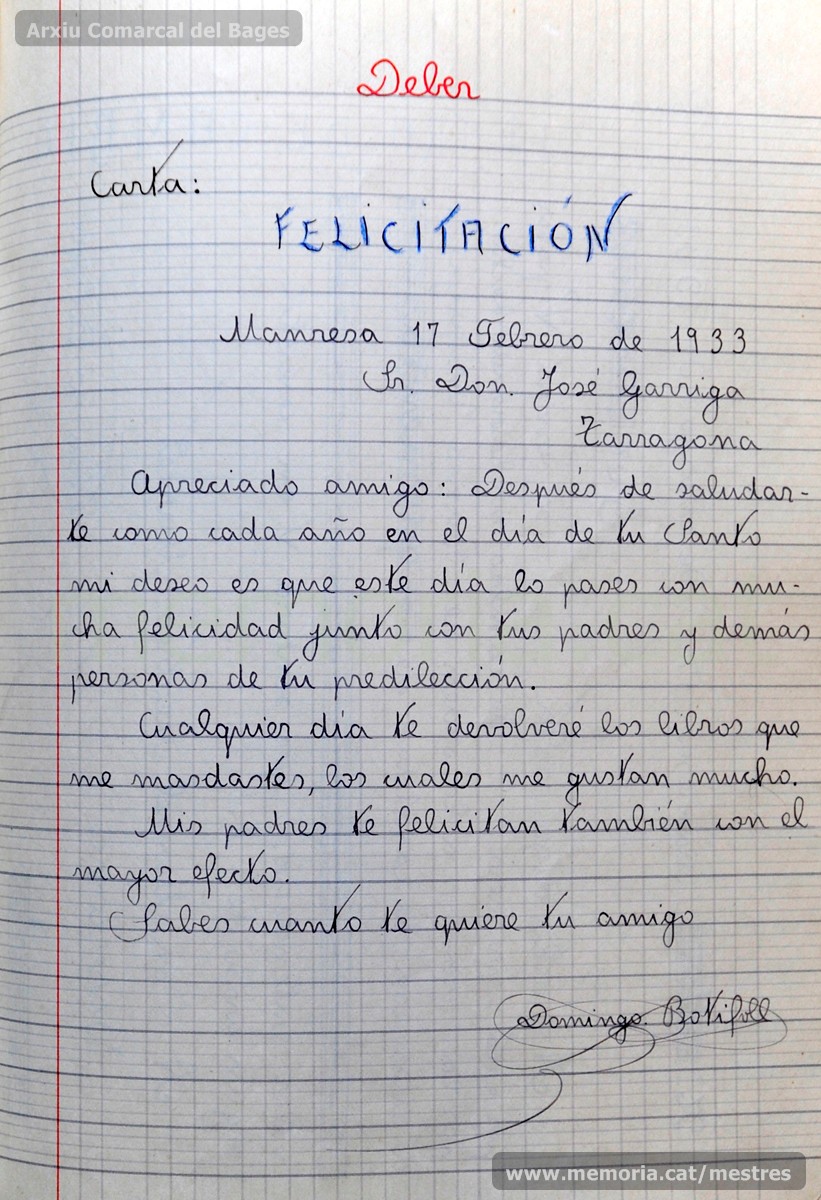 Arxiu Comarcal del Bages
Deber
Carta:
FELICITACIÓN
Manresa 17 Febrero de 1933
Sr. Don. José Garriga
Tarragona
Apreciado amigo: Después de saludar-
te como cada año en el día de tu Santo
mi deseo es que este día lo pases con mu-
cha felicidad junto con tus padres y demás
personas de tu predilección.
Cualquier día te devolveré los libros que
me masdastes, los cuales me gustan mucho.
Mis padres te felicitan también con el
mayor efecto.
Sabes cuanto te quiere tu amigo
Domingo. Botifoll
www.memoria.cat/mestres